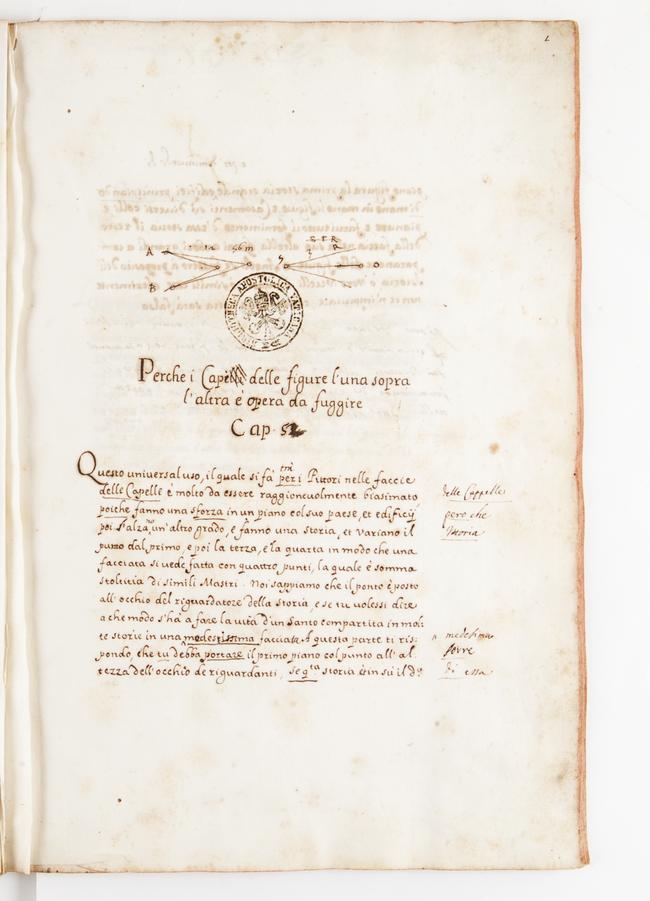 A
B
S T R
R
o
BIBLIOTHECA APOSTOLICA VATICANA
Perche i Cape delle figure l'una sopra
l'altra è opera da fuggire
Cap.
Questo universal uso, il quale si fà per i Pittori nelle faccie
delle Capelle è molto da essere raggioneuolmente biasimato,
poiche fanno una sforza in un piano col suo paese, et edificij
poi s'alza un'altro grado, e fanno una storia, et variano il
punto dal primo, e poi la terza, e la quarta in modo che una
facciata si vede fatta con quattro punti, la quale è somma
stoltitia di simili Mastri. Noi sappiamo che il ponto è posto
all'occhio del riguardatore della storia, e se tu volessi dire
a che modo s'hà a fare la vità d'un Santo compartita in mol:
te storie in una modestissima facciata. A questa parte ti ris:
pondo, che tu debba portare il primo piano col punto all'al.
tezza dell'occhio de riguardanti, se qta storia in sù il do
delle Cappelle
pero che
storia
medesima
porre
di essa